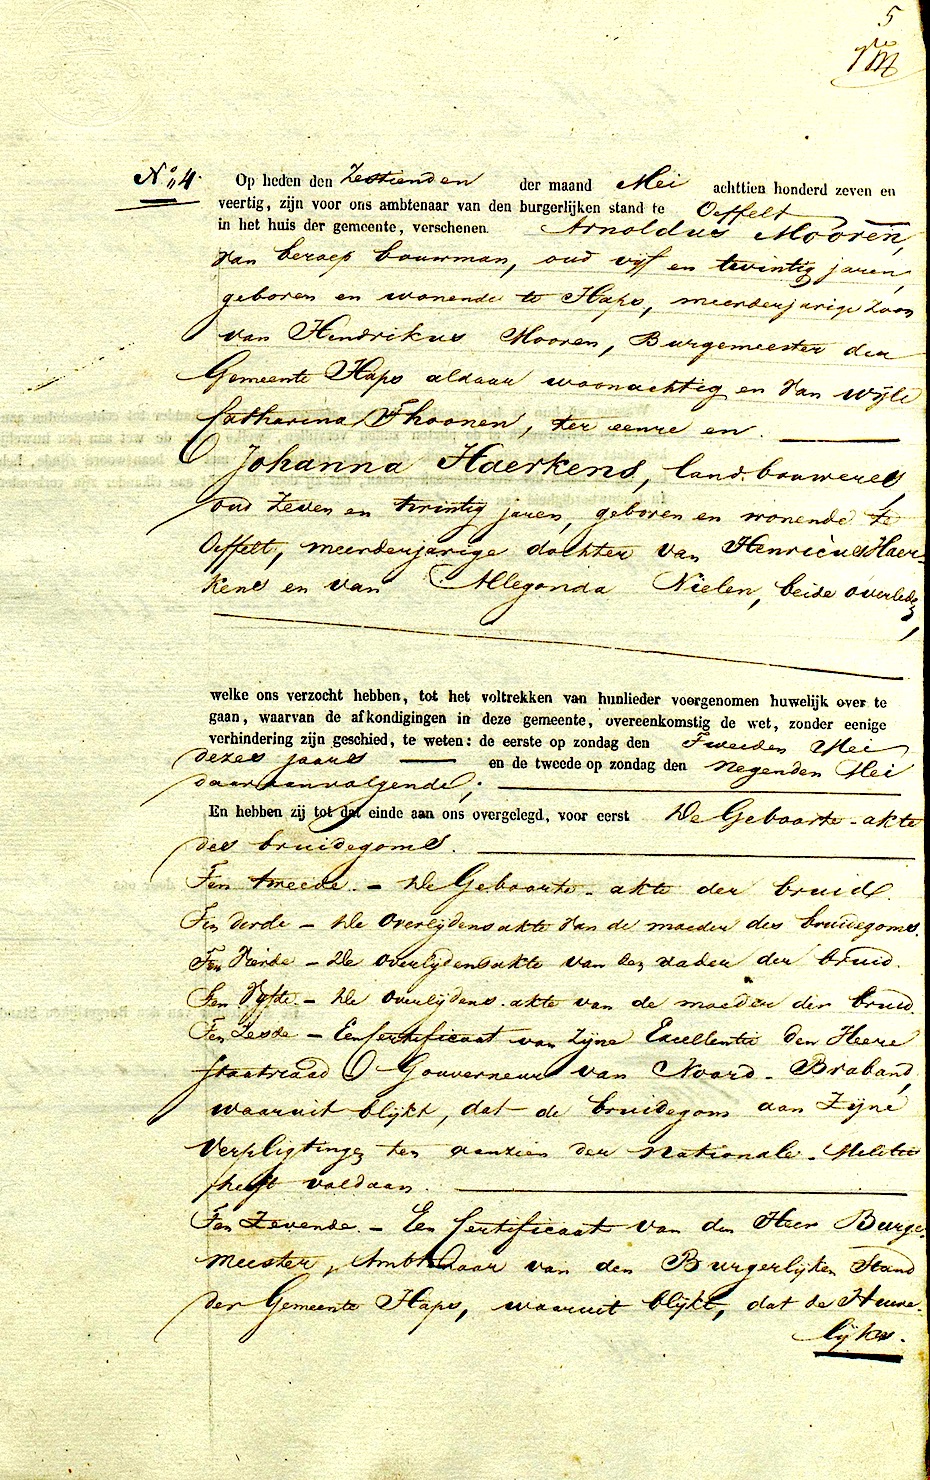 5
N.º 4.
Op heden den Zestienden der maand Mei achttien honderd zeven en
veertig, zijn voor ons ambtenaar van den burgerlijken stand te Oeffelt
in het huis der gemeente, verschenen. Arnoldus Mooren,
van beroep bouwman, oud vijf en twintig jaren,
geboren en wonende te Haps, meerderjarige zoon
van Hendrikus Mooren, Burgemeester der
Gemeente Haps aldaar woonachtig en van wijle
Catharina Thoonen, ter eenre en
Johanna Haerkens, landbouweres,
oud zeven en twintig jaren, geboren en wonende te
Oeffelt, meerderjarige dochter van Henricus Haer-
kens en van Allegonda Nielen, beide overleden,
welke ons verzocht hebben, tot het voltrekken van hunlieder voorgenomen huwelijk over te
gaan, waarvan de afkondigingen in deze gemeente, overeenkomstig de wet, zonder eenige
verhindering zijn geschied, te weten: de eerste op zondag den Tweeden Mei
dezes jaars en de tweede op zondag den negenden Mei
daaraanvolgende;
En hebben zij tot dat einde aan ons overgelegd, voor eerst De Geboorte-akte
des bruidegoms.
Ten tweede. - De Geboorte-akte der bruid.
Ten derde - De overlijdensakte van de moeder des bruidegoms.
Ten Vierde - De overlijdensakte van den vader der bruid.
Ten Vyfde. - De overlydens-akte van de moeder der bruid.
Ten Zesde - Een Certificaat van Zyne Excellentie den Heere
Staatsraad Gouverneur van Noord-Braband,
waaruit blykt, dat de bruidegom aan Zyne
Verpligtingen ten aanzien der nationale-Militie
heeft voldaan.
Ten Zevende. - Een Certificaat van den Heer Burge-
meester, Ambtenaar van den Burgerlyken Stand
der Gemeente Haps, waaruit blykt, dat de Huwe-
lyks-